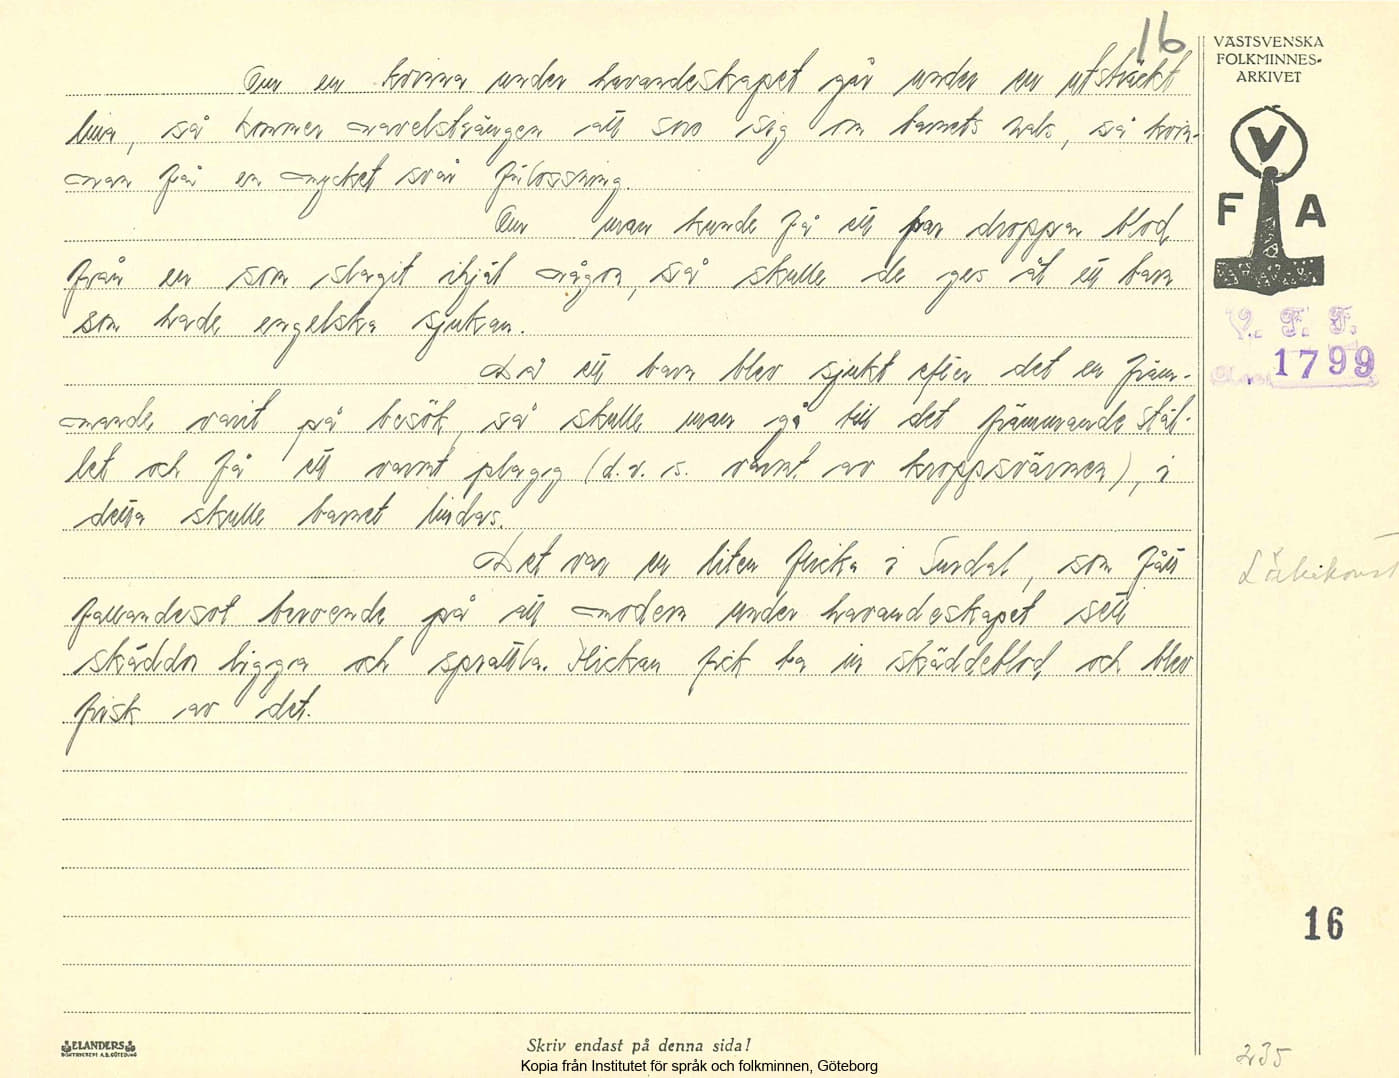 16
VÄSTSVENSKA
FOLKMINNES-
ARKIVET
V
F A
V. F. F.
1799
Om en kvinna under havandeskapet går under en utsträckt
lina, så kommer navelsträngen att sno sig om barnets hals, så kvin-
nan får en mycket svår förlossning.
Om man kunde få ett par droppar blod
från en som slagit ihjäl någon, så skulle de ges åt ett barn
som hade engelska sjukan.
Då ett barn blev sjukt efter det en främ-
mande varit på besök, så skulle man gå till det främmande stäl-
let och få ett varmt plagg (d.v.s. varmt av kroppsvärmen), i
detta skulle barnet lindas.
Det var en liten flicka i Surdal, som fått
fallandesot beroende på att modern under havandeskapet sett
skäddor ligga och sprattla. Flickan fick ta in skäddeblod, och blev
frisk av det.
16
235
ELANDERS
BOKTRYCKERI A.B. GÖTEBORG
Skriv endast på denna sida!
Kopia från Institutet för språk och folkminnen, Göteborg